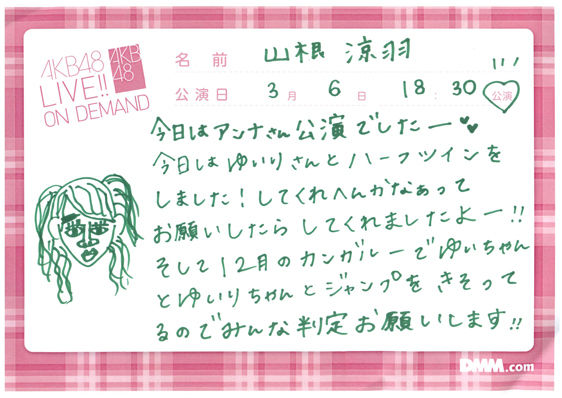 AKB48
LIVE!!
ON DEMAND
AKB
48
名前 山根 涼羽
公演日 3月6日 18:30 公演
今日はアンナさん公演でしたー
今日はゆいりさんとハーフツインを
しました!してくれへんかなぁって
お願いしたらしてくれましたよー!!
そして12月のカンガルーでゆいちゃん
とゆいりちゃんとジャンプをきそって
るのでみんな判定お願いします!!
DMM.com